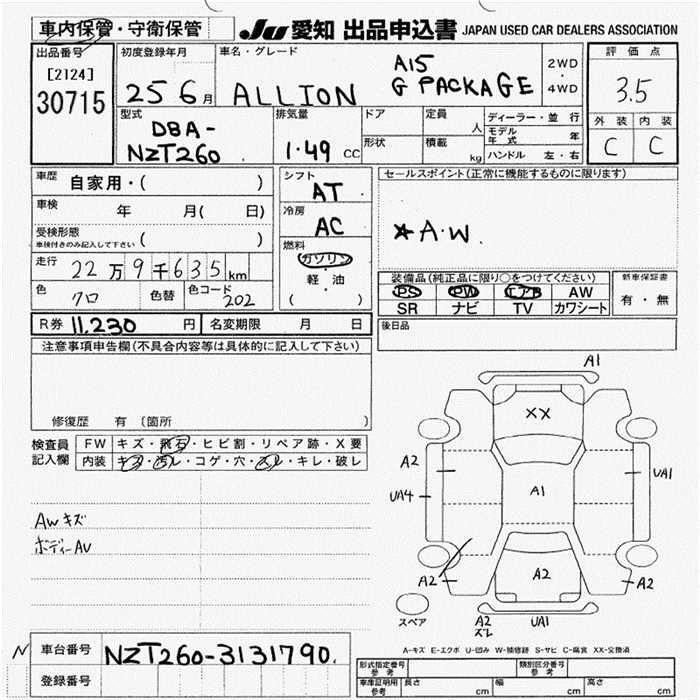 車内保管・守衛保管
Ju 愛知 出品申込書 JAPAN USED CAR DEALERS ASSOCIATION
出品番号
[2124]
30715
初度登録年月
25 6月
車名・グレード
ALLION
A15
G PACKAGE
2WD
・
4WD
評価点
3.5
外装 内装
C C
型式
DBA-
NZT260
排気量
1.49 cc
ドア
形状
定員
人
積載
kg
ディーラー・並行
モデル年式 年
ハンドル 左・右
車歴 自家用・( )
車検 年 月( 日)
受検形態
車検付きのみ記入して下さい ( )
走行 22万9千635km
色 クロ 色替 色コード 202
シフト
AT
冷房
AC
燃料
ガソリン
軽・油
( )
セールスポイント(正常に機能するものに限ります)
★A.W.
装備品(純正品に限り○をつけてください)
PS PW エアB AW
SR ナビ TV カワシート
新車保証書
有・無
後日品
R券 11,230 円 名変期限 月 日
注意事項申告欄(不具合内容等は具体的に記入して下さい)
修復歴 有 〔箇所 〕
検査員
記入欄
FW キズ・飛石・ヒビ割・リペア跡・X要
内装 キズ・汚レ・コゲ・穴・スレ・キレ・破レ
AWキズ
ボディーAU
A1
XX
A2
UA4
A1
UA1
A2
A2
A2
スペア
A2
ズレ
UA1
A-キズ E-エクボ U-凹み W-補修跡 S-サビ C-腐食 XX-交換済
N
車台番号 NZT260-3131790.
登録番号
形式指定番号
参考
類別区分番号
参考
車庫証明用
参考
長さ cm 幅 cm 高さ cm